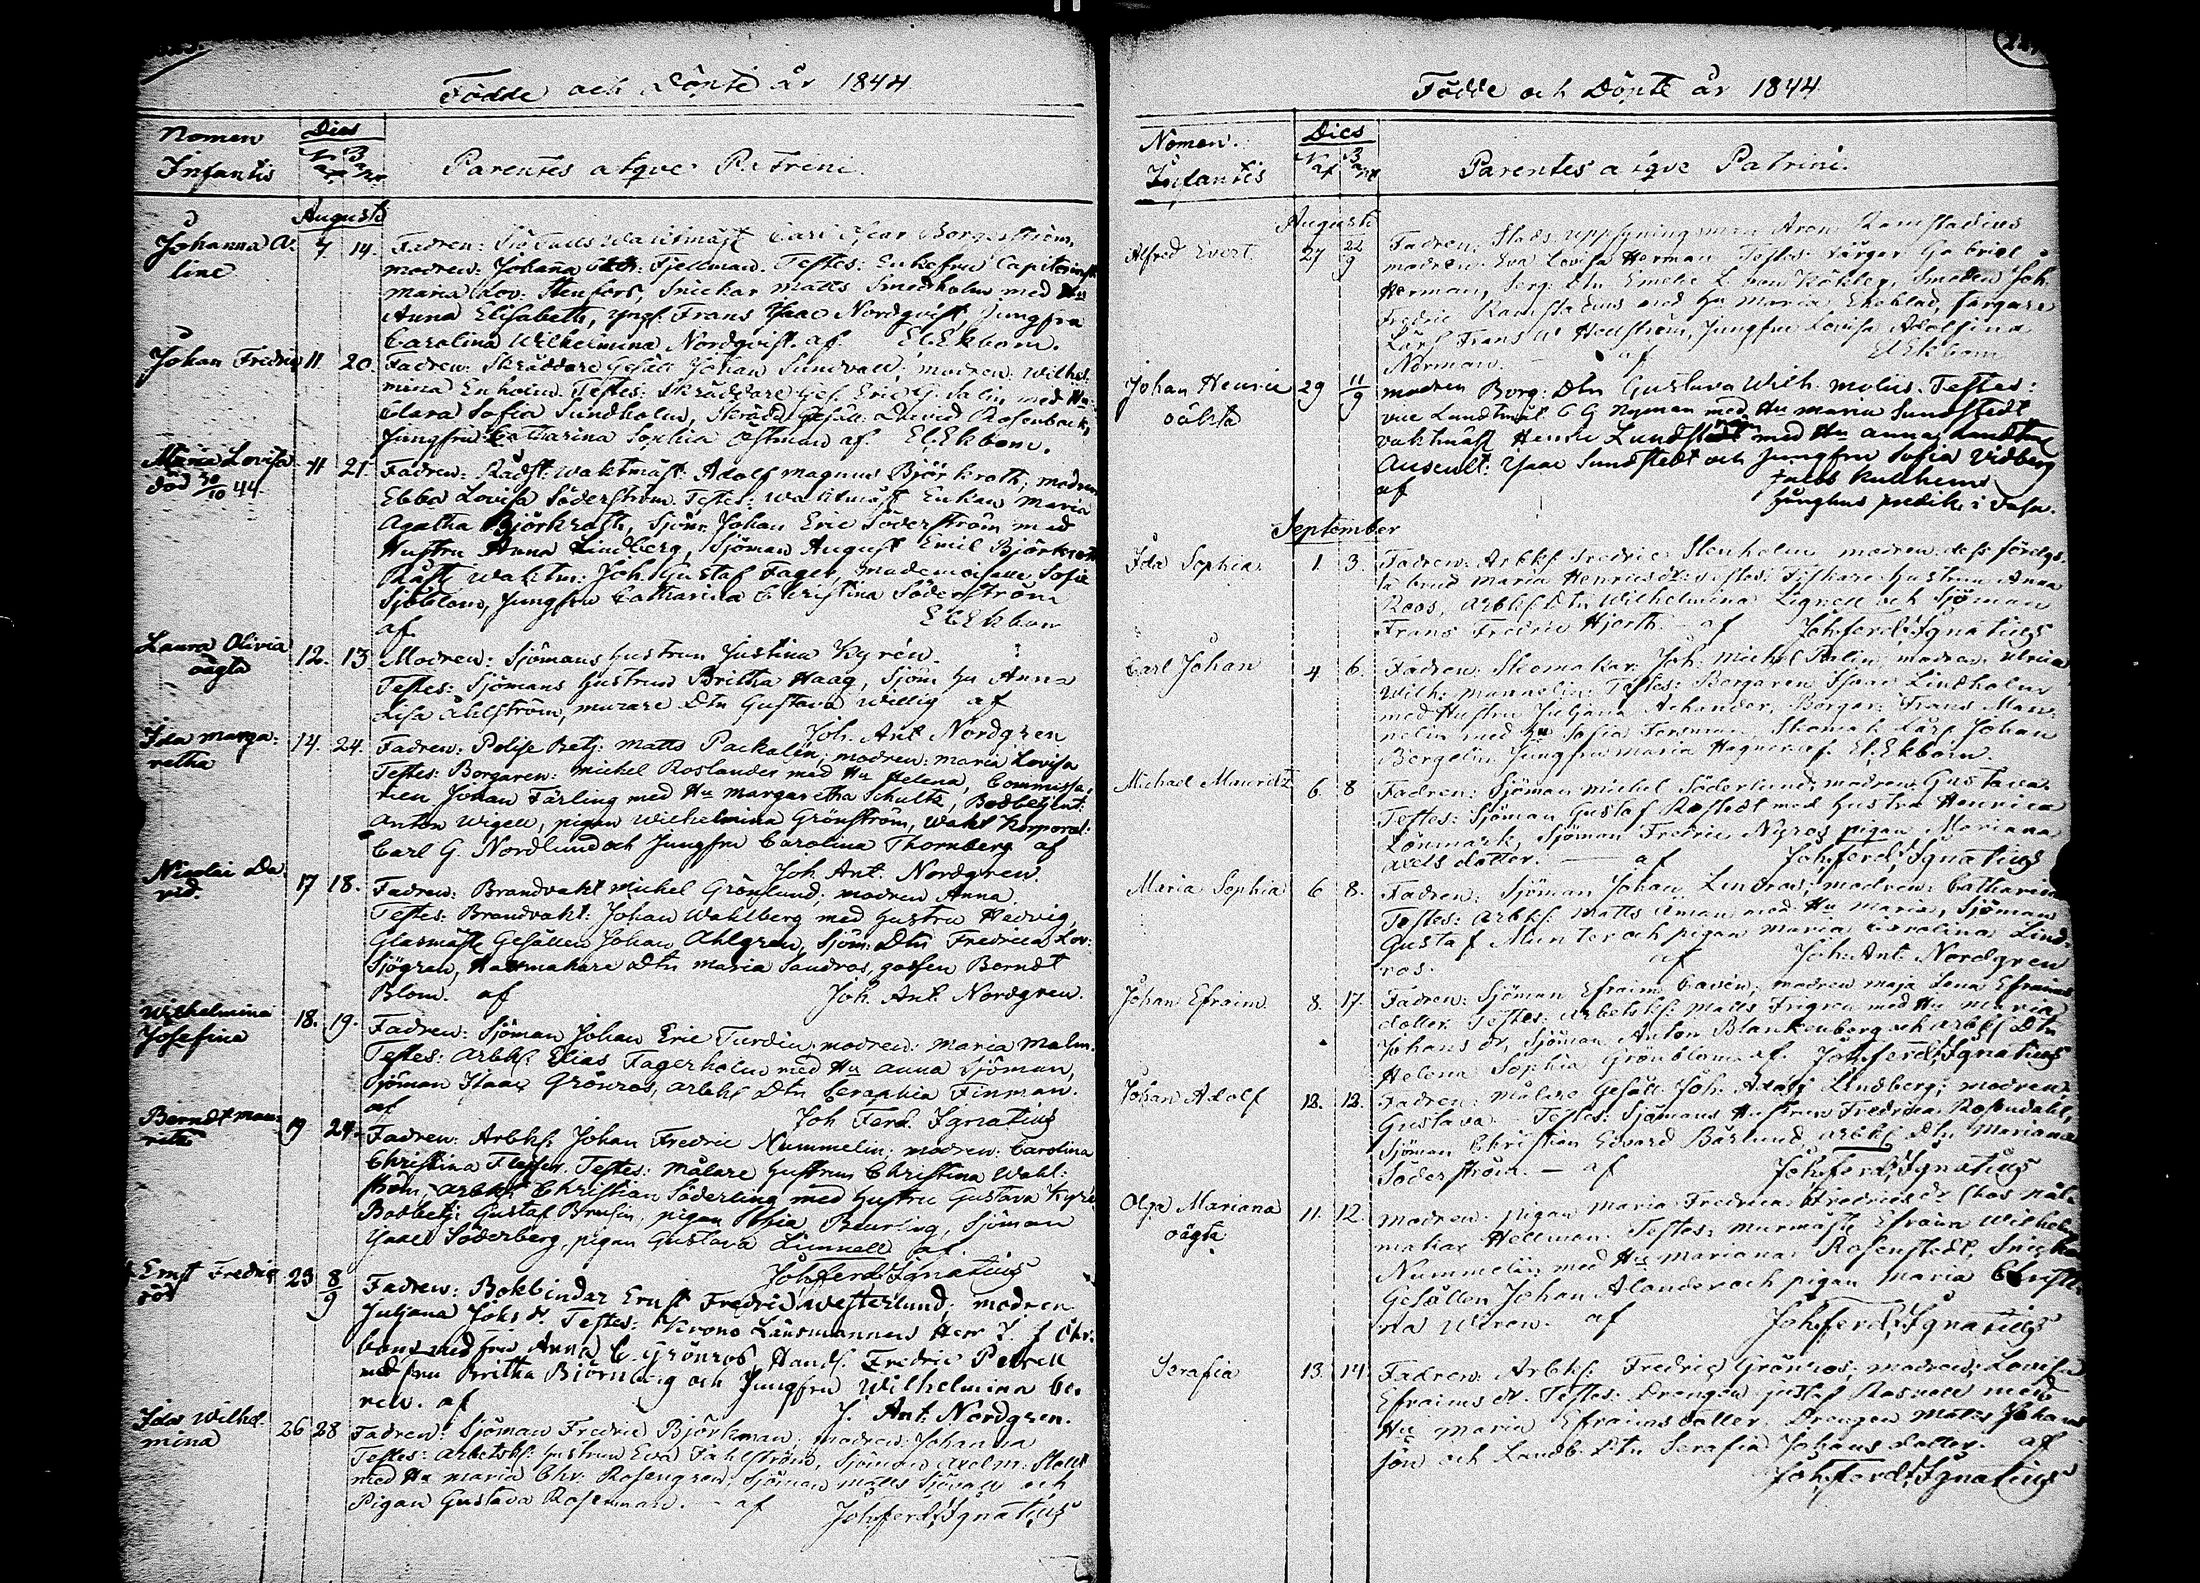 Födde och Döpte år 1844
Nomen Infantis
Dies
Nat Bapt
Parentes atque Patreni.
Augusti
Johanna Aline
7. 14. Fadren: Wacktmäst Carl Borgström,
modren: Johanna Fjellman. Testes: Enkefru
Maria Lov. Stenfors, Snickar Matts Smedholm med Hu
Anna Elisabeth, yngl. Frans Isaac Nordqvist, Jungfru
Carolina Wilhelmina Nordqvist. af El. Ekbom.
Johan Fredric
11 20. Fadren: Skräddare Gesäll Johan Sundvall; modren: Wilhel-
mina Enholm. Testes: Skräddare Ges. Eric G. Salin med Hu
Clara Sofia Sundholm, Skrädd. Gesäll David Rosenback,
Jungfru Catharina Sophia Östman af El. Ekbom.
Maria Lovisa
död 30/10 44
11 21. Fadren: Rådst. Waktmäst. Adolf Magnus Björkroth; modren
Ebba Lovisa Söderström. Testes: Waktmäst Enkan Maria
Agatha Björkroth, Sjöm. Johan Eric Söderström med
Hustru Anna Lindberg, Sjöman August Emil Björkroth
Rådst Waktm: Joh. Gustaf Fager, Mademoiselle Sofia
Sjöblom, Jungfru Catharina Christina Söderström
af El. Ekbom
Laura Olivia
oägta
12. 13 Modren: Sjömans Hustrun Justina Kyrén.
Testes: Sjömans Hustrun Britha Haag, Sjöm. Hu Anna
Lisa Åhlström, murare Dtn Gustava Willig af
Joh. Ant Nordgren
Ida Marga-
retha
14. 24. Fadren: Polise Betj: Matts Packalén; modren: Maria Lovisa
Testes: Borgaren: Michel Roslander med Hu Helena, Commissa-
rien Johan Färling med Hu Margaretha Schultz, Bodbetjent:
Anton Wigell, pigan Wilhelmina Grönström, Wakt Korporal:
Carl G. Nordlund och Jungfru Carolina Thornberg af
Joh Ant. Nordgren
Nicolai Da
vid.
17 18. Fadren: Brandvakt Michel Grönlund; modren Anna.
Testes: Brandvakt: Johan Wahlberg med Hustru Hedvig,
Glasmäst Gesällen Johan Ahlgren, Sjöm: Dtn Fredrica Lov:
Sjögren, Hattmakare Dtn Maria Sandros, gossen Berndt
Blom. af Joh. Ant. Nordgren.
Wilhelmina
Josefina
18. 19. Fadren: Sjöman Johan Eric Turdin; modren: Maria Malm.
Testes: Arbkf: Elias Fagerholm med Hu Anna Sjöman,
Sjöman Isaac Grönros, arbkf Dtn Seraphia Finman.
af Joh Ferd. Ignatius
Berndt Mau-
ritz
19 24. Fadren: Arbkf: Johan Fredric Nummelin; modren: Carolina
Christina Testes: Målare Hustrun Christina Wahl-
ström, arbkf: Christian Söderling med Hustru Gustava
Bodbetj: Gustaf Brusin, pigan Beurling, Sjöman
Söderberg, pigan Gustava Linnell af
Joh. Ferd. Ignatius
Ernst Fredric
död
23 8/9 Fadren: Bokbindar Ernst Fredric Westerlund; modren
Juljana Johs dr. Testes: Krono Länsmannen Herr J. F Öhr-
bom med fru Anna C. Grönros, Handl. Fredric Petrell
med fru Britha Björnberg och Jungfru Wilhelmina
af J. Ant. Nordgren.
Ida Wilhel-
mina
26 28 Fadren: Sjöman Fredric Björkman; modren Johanna
Testes: Arbetskf: Hustrun Eva Fahlström, Sjöman
med Hu Maria Chr. Rosengren, Sjöman Matts Sjövall och
Pigan Gustava Rosenman. af Joh. Ferd. Ignatius
Födde och Döpte år 1844
Nomen.
Infantis
Dies
Nat Bapt
Parentes atqve Patrini.
Augusti
Alfred Evert
27 22/9 Fadren: Stads uppsyningsman Aron Ramstadius
modren: Eva Lovisa Herman Testes: Färgar Gabriel
Herman, Serg: Dtn Emelie L. von Köhler, Smeden Joh.
Fredric Ramstadius med Hu Maria Ekeblad, färgare
Lärl Frans W Hellström, Jungfru Lovisa Adolfina
Norman. af El Ekbom
Johan Henric
oäkta
29 11/9 modren Borg: Dtn Gustava Wilh. Molin. Testes:
vice Landtmät. C G Nyman med Hu Maria Sundstedt,
vaktmäst Henric Lundstedt med Hu Anna
Auscult: Isaac Sundstedt och Jungfru Sofia Vidberg
af
September
Ida Sophia
1. 3. Fadren: Arbkf. Fredric Stenholm modren: dess
brud Maria Henricsdr. Testes: Fiskare Hustrun Anna
Roos, Arbkf: Dtn Wilhelmina Lignell och Sjöman
Frans Fredric Hjorth. af Joh. Ferd. Ignatius
Carl Johan
4 6. Fadren: Skomakar: Joh: Michel Palin, modren Ulrica
Wilh: Mannelin. Testes: Borgaren Isaac Lindholm
med Hustru Juljana Achander, Borgar: Frans Man-
nelin med Hu Sofia Forsman Skomak Lärl Johan
Bergelin Jungfru Maria Hagner af El: Ekbom.
Michael Mauritz
6 8 Fadren: Sjöman Michel Söderlund; modren Gustava.
Testes: Sjöman Gustaf Rostedt med Hustru Henrica
Lönmark, Sjöman Fredric Nyros pigan Mariana
Axels dotter. af Joh. Ferd. Ignatius
Maria Sophia
6 8. Fadren: Sjöman Johan Lindros; modren: Catharina
Testes: Arbkf: Matts Öman med Hu Maria, Sjöman
Gustaf Munter och pigan Maria Carolina Lind-
ros. af Joh: Ant: Nordgren
Johan Efraim
8. 17. Fadren: Sjöman Efraim Cavén; modren Maja Lena Efraims
dotter. Testes: Arbetskf: Matts Frigren med Hu Maria
Johans dr, Sjöman Anton Blankenberg och arbkf Dtn
Helena Sophia Grönblom af Joh. Ferd. Ignatius
Johan Adolf
12. 12. Fadren: Målare Gesäll Joh: Adolf Lindberg; modren:
Gustava. Testes: Sjömans Hustrun Fredrica Rosendahl,
Sjöman Christian Edvard Bärlund, arbkf Dtn Mariana
Söderström. — af Joh. Ferd. Ignatius
Olga Mariana
oägta
11. 12. modren: pigan Maria Fredrica Fredricsdr (hos nål-
makar Hellman. Testes: Murmäst Efraim Wilhelm
Nummelin med Hu Mariana Rosenstedt, Snickar
Gesällen Johan Alander och pigan Maria Christi-
na Wiren. af Joh. Ferd. Ignatius
Serafia
13. 14. Fadren: Arbkf: Fredric Grönroos; modren: Lovisa
Efraims dr. Testes: Drengen Gustaf Rosvall med
Hu Maria Efraimsdotter. Drengen Matts Johans
son och Landb: Dtn Serafia Johansdotter. af
Joh. Ferd. Ignatius